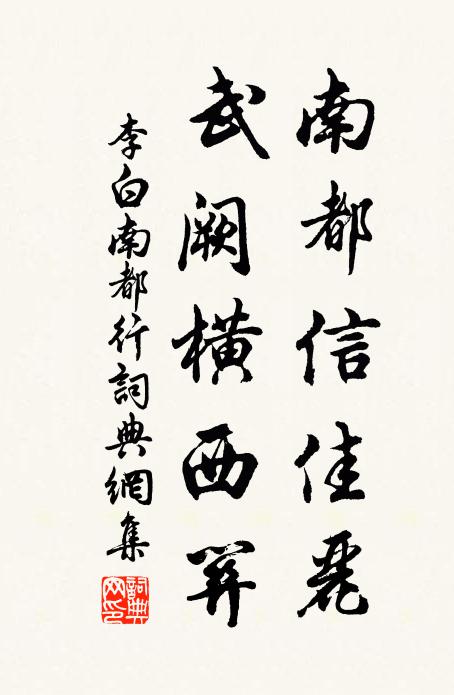 南都信佳麗
武闕橫西關
李白南都行詞典網集
詞典網印